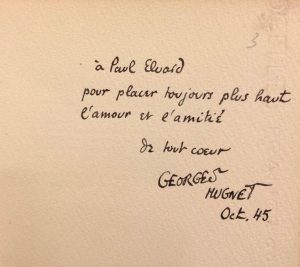 3
à Paul Eluard
pour placer toujours plus haut
l'amour et l'amitié
de tout coeur
GEORGES
HUGNET
Oct. 45